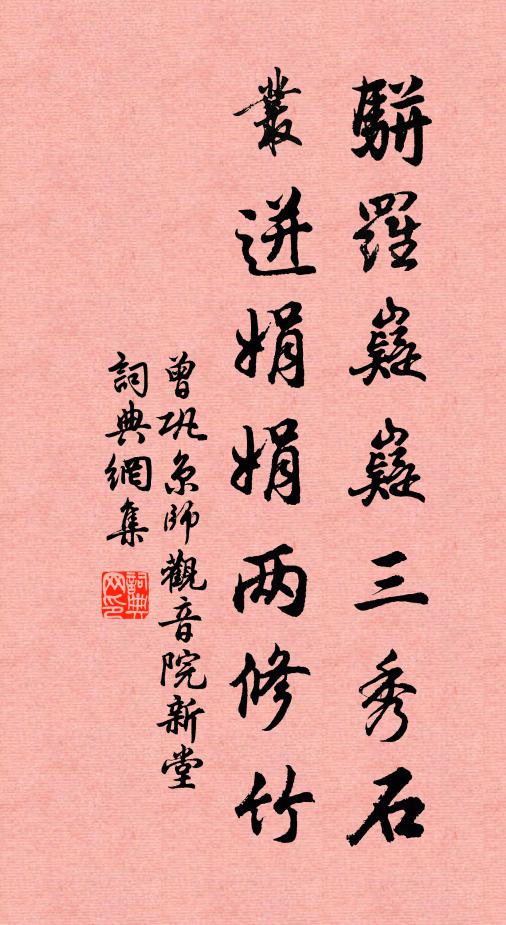 騈羅嶷嶷三秀石
叢迸娟娟两修竹
曾巩京師觀音院新堂
詞典網集
詞典网印